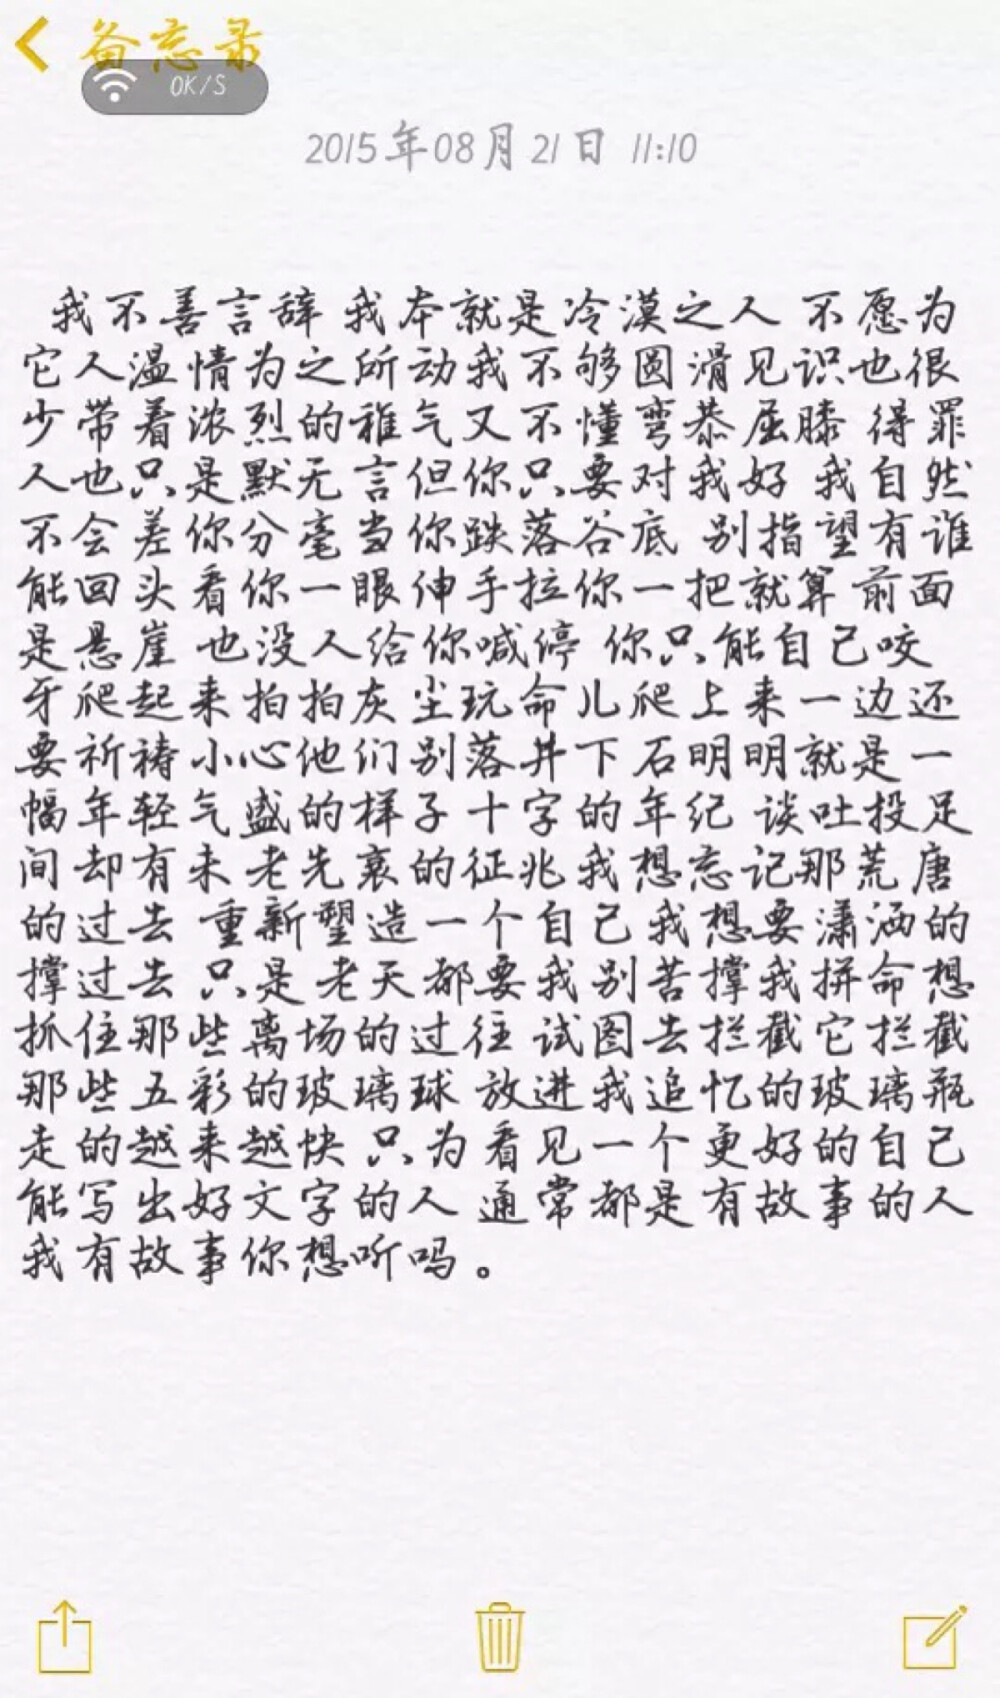 备忘录
0K/S
2015年08月21日 11:10
我不善言辞 我本就是冷漠之人 不愿为
它人温情为之所动我不够圆滑见识也很
少带着浓烈的稚气又不懂弯恭屈膝 得罪
人也只是默无言但你只要对我好 我自然
不会差你分毫当你跌落谷底 别指望有谁
能回头看你一眼伸手拉你一把就算前面
是悬崖 也没人给你喊停 你只能自己咬
牙爬起来拍拍灰尘玩命儿爬上来一边还
要祈祷小心他们别落井下石明明就是一
幅年轻气盛的样子十字的年纪 谈吐投足
间却有未老先衰的征兆我想忘记那荒唐
的过去 重新塑造一个自己我想要潇洒的
撑过去 只是老天都要我别苦撑我拼命想
抓住那些离场的过往 试图去拦截它拦截
那些五彩的玻璃球 放进我追忆的玻璃瓶
走的越来越快 只为看见一个更好的自己
能写出好文字的人 通常都是有故事的人
我有故事你想听吗。